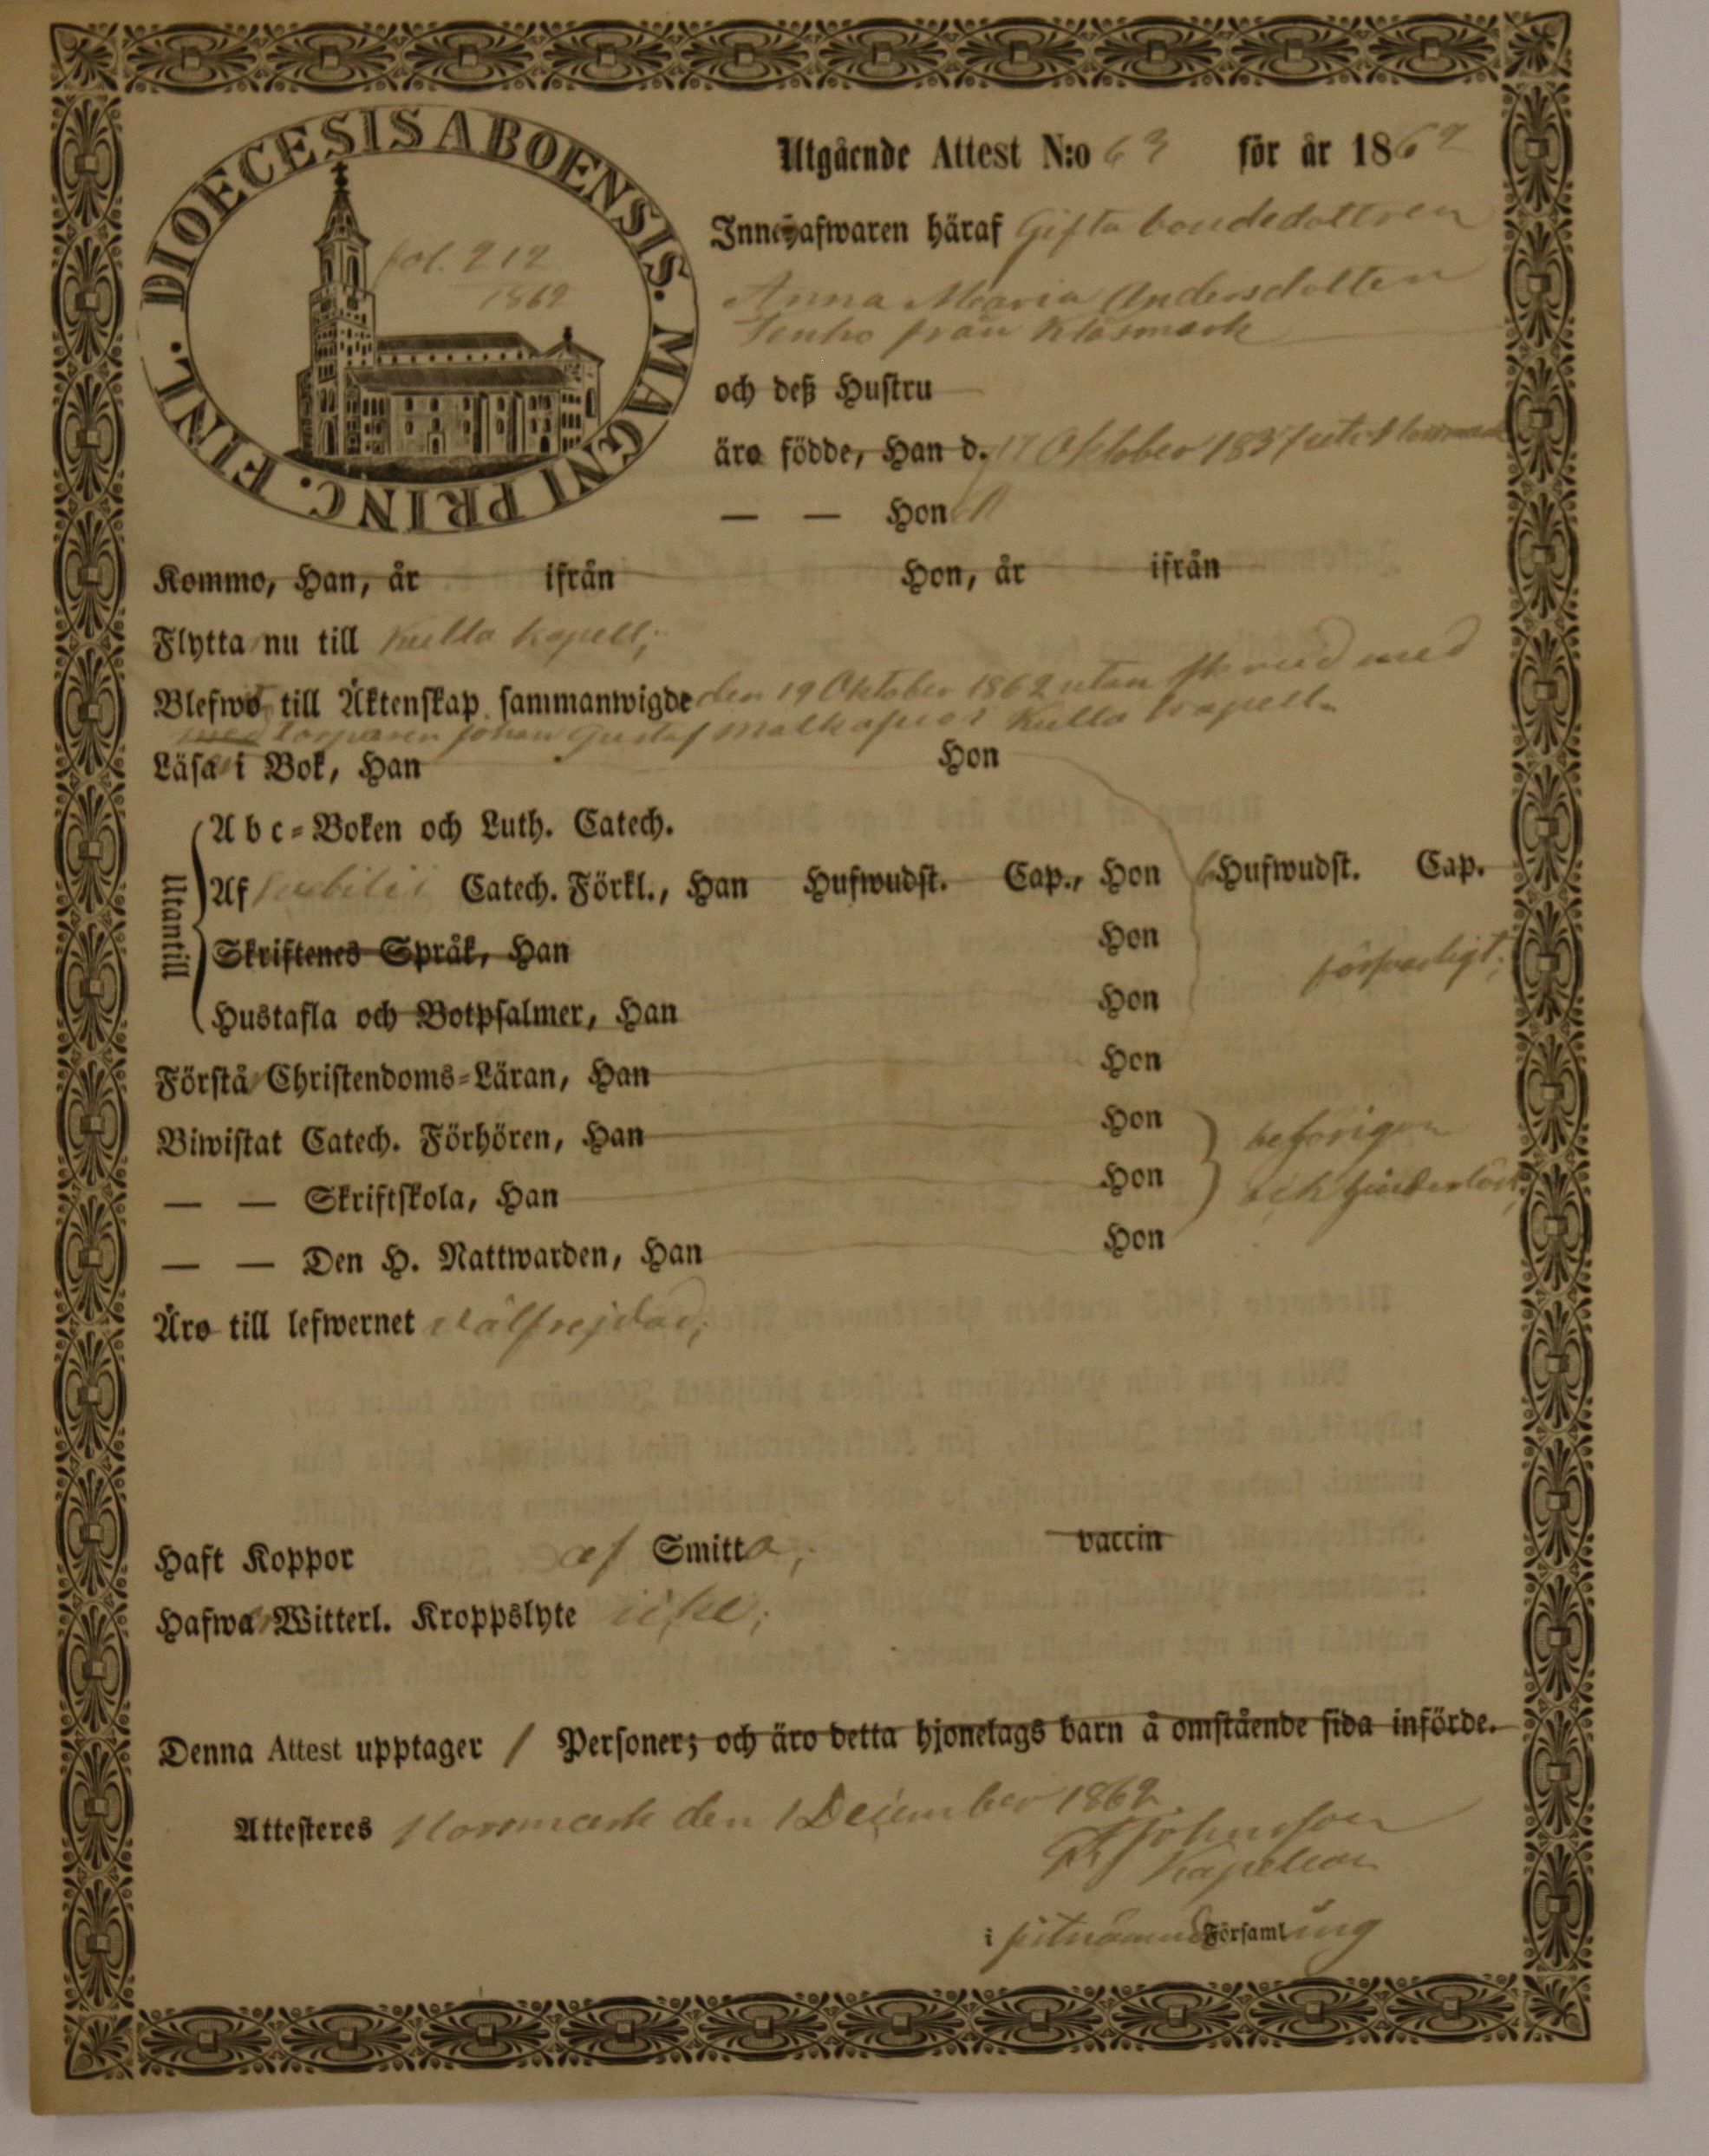 DIOECESIS ABOENSIS. MAGNI PRINC. FINL.
fol. 212
1862
Utgående Attest N:o 63 för år 1862
Innehafwaren häraf Gifta bondedottren
Anna Maria Andersdotter
från Klåsmark
och deß Hustru
äro födde, Han d. 17 Oktober 1837
— — Hon
Komme, Han, år ifrån Hon, år ifrån
Flytta nu till Kulla kapell;
Blefwo till Äktenskap sammanwigde den 19 Oktober 1862 utan med
med torparen Johan Gustaf i Kulla kapell.
Läsa i Bok, Han Hon
Utantill
Abc-Boken och Luth. Catech.
Af Svebilii Catech. Förkl., Han Hufwudst. Cap., Hon Hufwudst. Cap.
Skriftenes Språk, Han Hon försvarligt;
Hustafla och Botpsalmer, Han Hon
Förstå Christendoms-Läran, Han Hon
Biwistat Catech. Förhören, Han Hon behörigen
— — Skriftskola, Han Hon och hinderlös;
— — Den H. Nattwarden, Han Hon
Äro till lefwernet välfrejdad;
Haft Koppor af Smitta; vaccin
Hafwa Witterl. Kroppslyte icke;
Denna Attest upptager 1 Personer; och äro detta hjonelags barn å omstående sida införde.
Attesteres Norrmark den 1 December 1862
Johnsson
Kapellan
i sitnämnd Församling